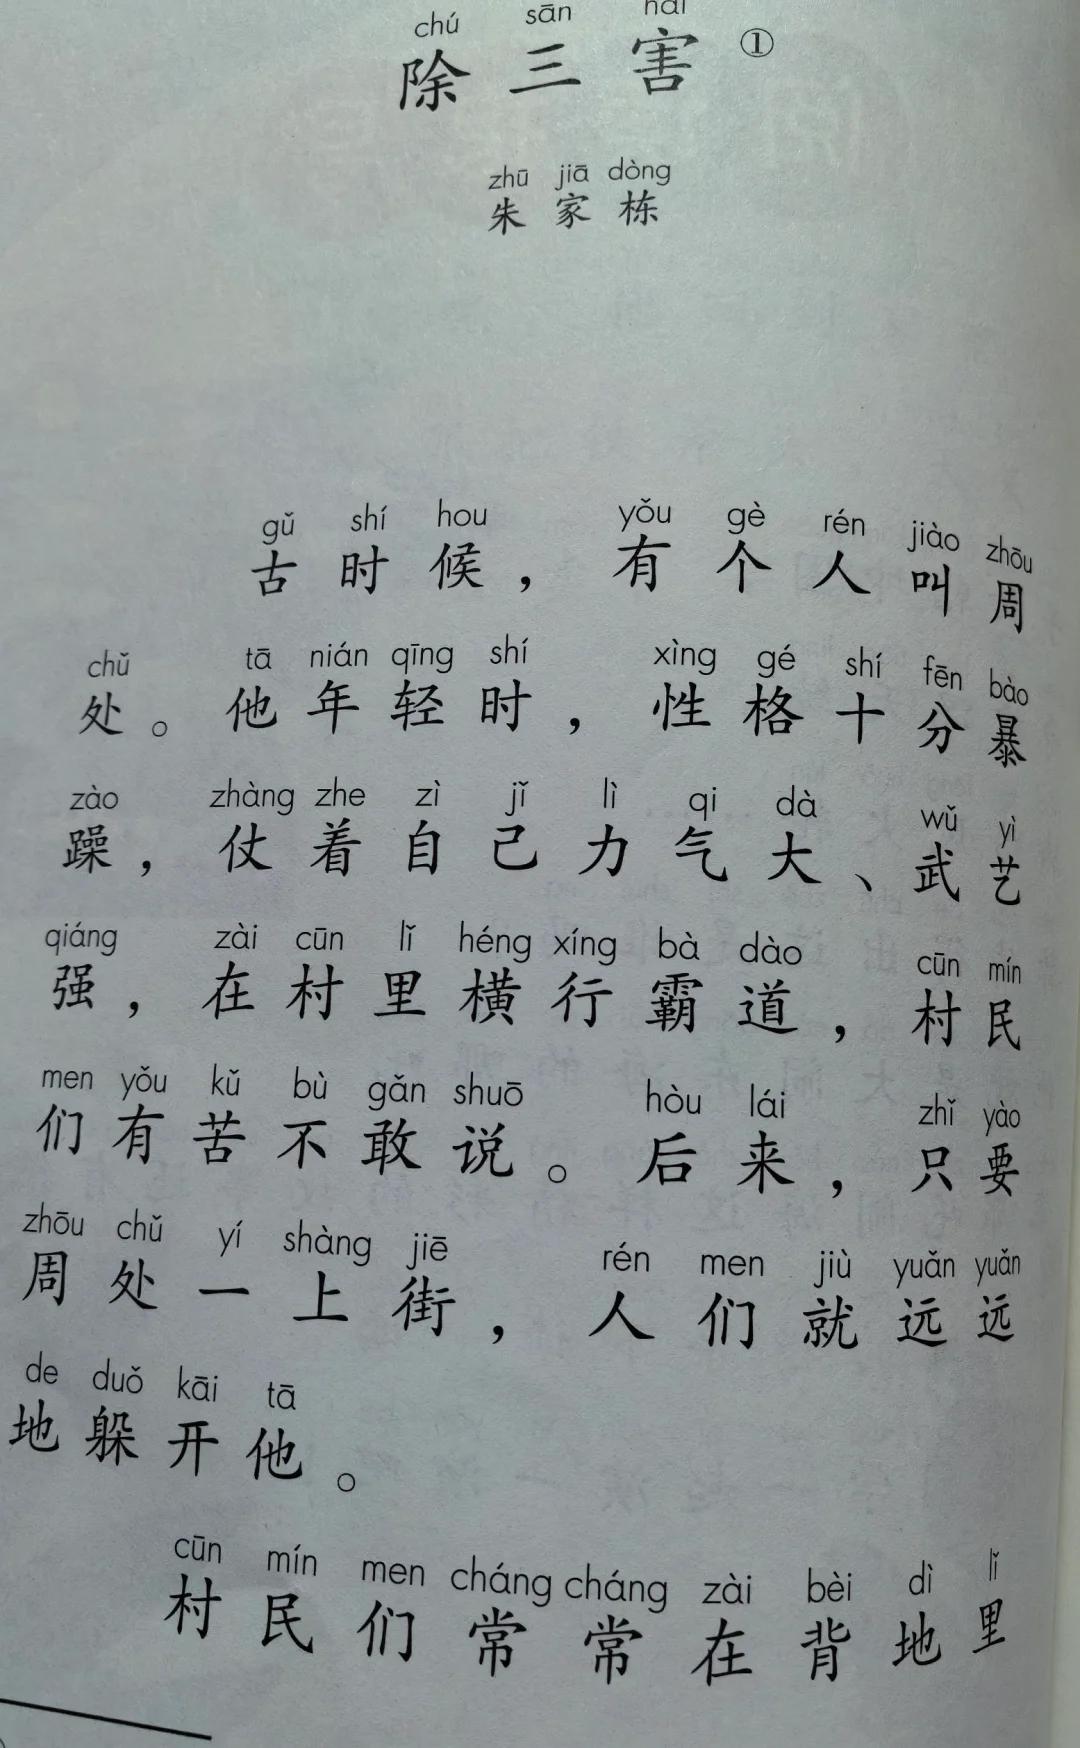 chú sān hài
除三害①
zhū jiā dòng
朱家栋
gǔ shí hou yǒu gè rén jiào zhōu
古时候，有个人叫周
chǔ tā nián qīng shí xìng gé shí fēn bào
处。他年轻时，性格十分暴
zào zhàng zhe zì jǐ lì qi dà wǔ yì
躁，仗着自己力气大、武艺
qiáng zài cūn lǐ héng xíng bà dào cūn mín
强，在村里横行霸道，村民
men yǒu kǔ bù gǎn shuō hòu lái zhǐ yào
们有苦不敢说。后来，只要
zhōu chǔ yí shàng jiē rén men jiù yuǎn yuǎn
周处一上街，人们就远远
de duǒ kāi tā
地躲开他。
cūn mín men cháng cháng zài bèi dì lǐ
村民们常常在背地里